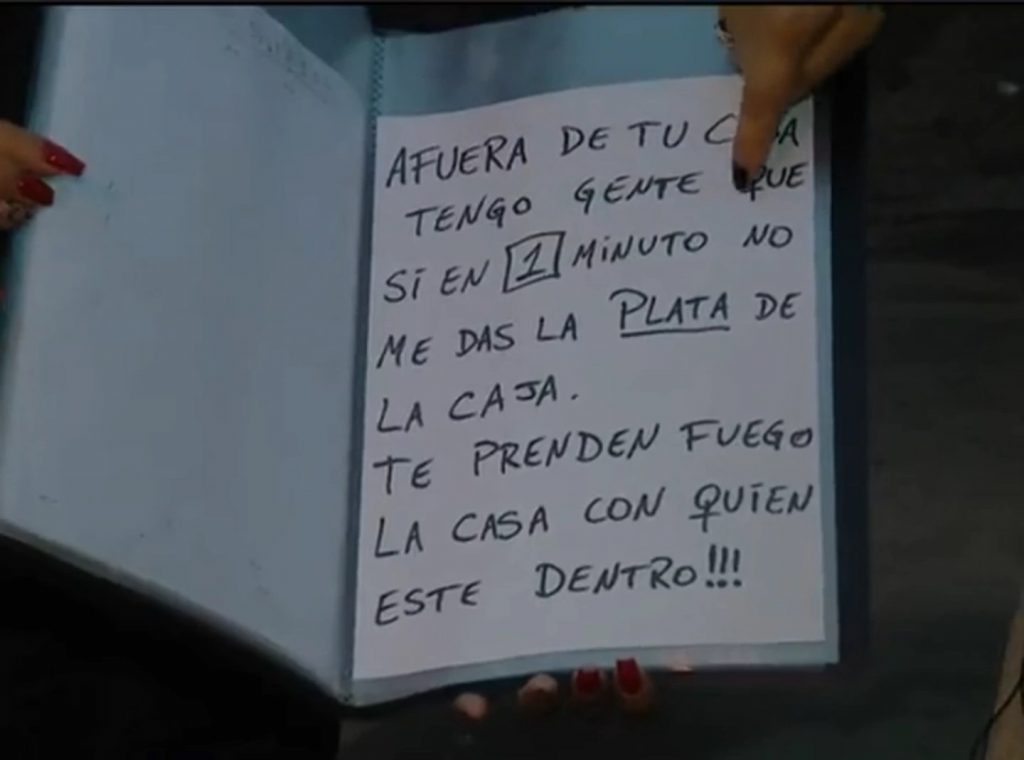 AFUERA DE TU CASA
TENGO GENTE QUE
SI EN 1 MINUTO NO
ME DAS LA PLATA DE
LA CAJA.
TE PRENDEN FUEGO
LA CASA CON QUIEN
ESTE DENTRO!!!